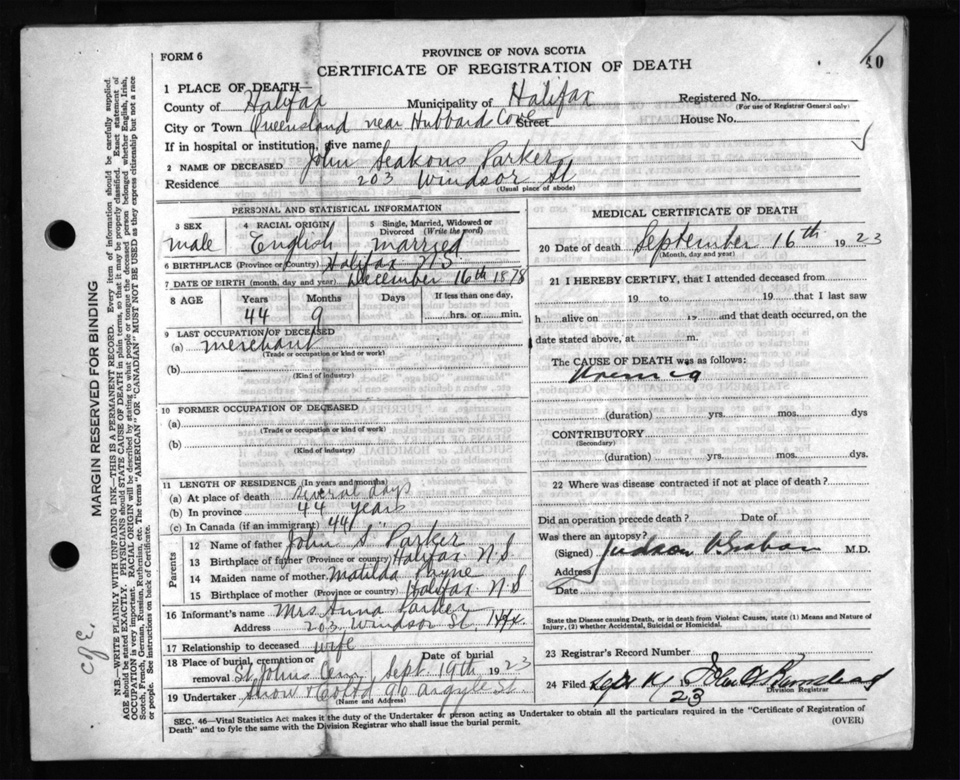 FORM 6
PROVINCE OF NOVA SCOTIA
CERTIFICATE OF REGISTRATION OF DEATH
40
1 PLACE OF DEATH—
County of Halifax Municipality of Halifax Registered No.
(For use of Registrar General only)
City or Town Queensland near Hubbard Cove Street House No.
If in hospital or institution, give name
2 NAME OF DECEASED John Seakous Parker
Residence 203 Windsor St
(Usual place of abode)
PERSONAL AND STATISTICAL INFORMATION
3 SEX 4 RACIAL ORIGIN 5 Single, Married, Widowed or Divorced (Write the word)
male English married
6 BIRTHPLACE (Province or Country) Halifax N.S
7 DATE OF BIRTH (month, day and year) December 16th 1878
8 AGE Years Months Days If less than one day,
44 9 hrs. or min.
9 LAST OCCUPATION OF DECEASED
(a) merchant
(Trade or occupation or kind or work)
(b)
(Kind of industry)
10 FORMER OCCUPATION OF DECEASED
(a)
(Trade or occupation or kind of work)
(b)
(Kind of industry)
11 LENGTH OF RESIDENCE (In years and months)
(a) At place of death several days
(b) In province 44 years
(c) In Canada (if an immigrant) 44 "
Parents
12 Name of father John S. Parker
13 Birthplace of father (Province or country) Halifax N.S
14 Maiden name of mother Matilda Payne
15 Birthplace of mother (Province or country) Halifax N.S
16 Informant's name Mrs Anna Parker
Address 203 Windsor St Hfx.
17 Relationship to deceased wife
18 Place of burial, cremation or removal St Johns Cem. Date of burial Sept. 19th 1923
19 Undertaker Snow & Co Ltd 90 Argyle St.
(Name and Address)
MEDICAL CERTIFICATE OF DEATH
20 Date of death September 16th 1923
(Month, day and year)
21 I HEREBY CERTIFY, that I attended deceased from
19 to 19 that I last saw
h alive on 19 and that death occurred, on the
date stated above, at m.
The CAUSE OF DEATH was as follows:
Uremia
(duration) yrs. mos. dys
CONTRIBUTORY
(Secondary)
(duration) yrs. mos. dys.
22 Where was disease contracted if not at place of death?
Did an operation precede death? Date of
Was there an autopsy?
(Signed) Judson Graham M.D.
Address
Date
State the Disease causing Death, or in death from Violent Causes, state (1) Means and Nature of Injury, (2) whether Accidental, Suicidal or Homicidal.
23 Registrar's Record Number
24 Filed Sept 19 1923 John A
Division Registrar
SEC. 46—Vital Statistics Act makes it the duty of the Undertaker or person acting as Undertaker to obtain all the particulars required in the "Certificate of Registration of
Death" and to fyle the same with the Division Registrar who shall issue the burial permit.
(OVER)
MARGIN RESERVED FOR BINDING
N.B.—WRITE PLAINLY WITH UNFADING INK—THIS IS A PERMANENT RECORD. Every item of information should be carefully supplied.
AGE should be stated EXACTLY. PHYSICIANS should STATE CAUSE OF DEATH in plain terms, so that it may be properly classified. Exact statement of
OCCUPATION is very important. RACIAL ORIGIN will be described by stating to what people or tongue the deceased person belonged whether English, Irish,
Scotch, French, German, Russian, Ruthenian, etc. The terms "AMERICAN" OR "CANADIAN" MUST NOT BE USED as they express citizenship but not a race
or people. See instructions on back of Certificate.